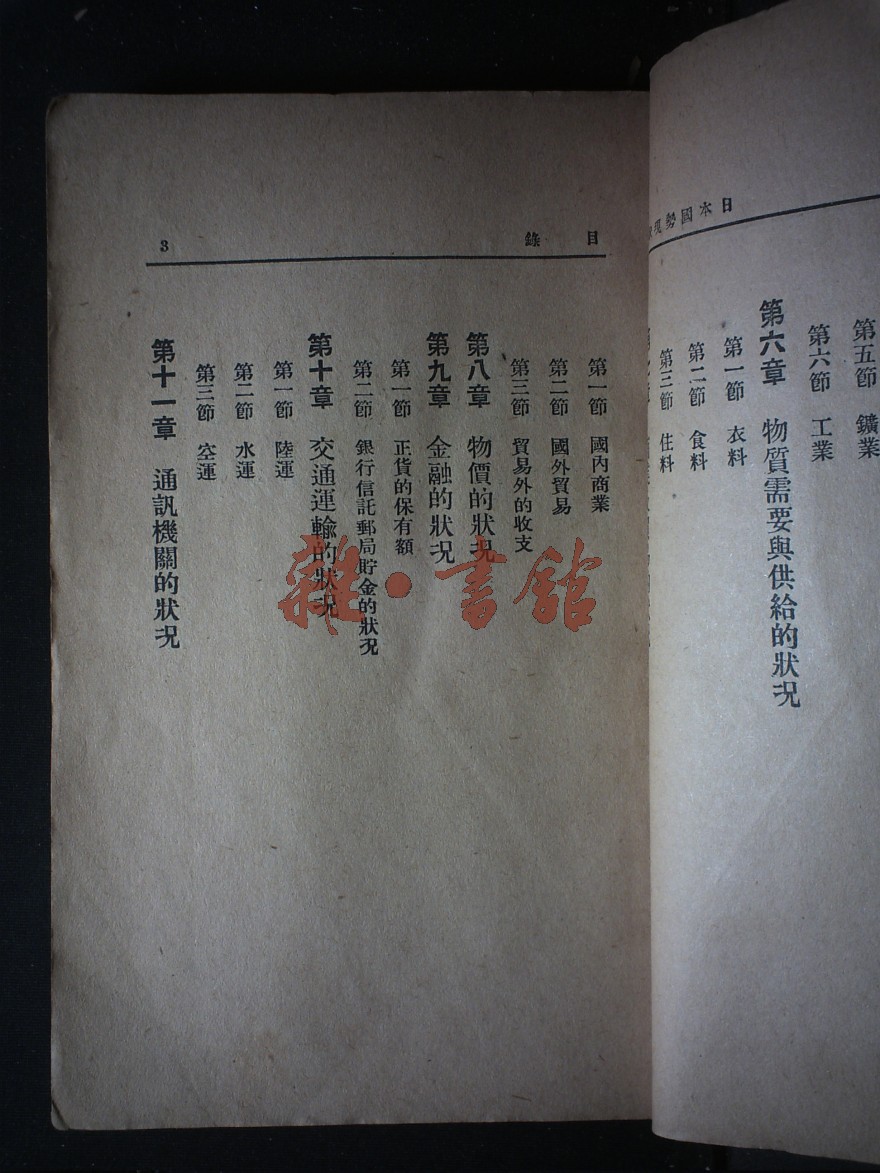 日本國勢現
第五節 鑛業
第六節 工業
第六章 物質需要與供給的狀況
第一節 衣料
第二節 食料
第三節 住料
目錄
3
第一節 國內商業
第二節 國外貿易
第三節 貿易外的收支
第八章 物價的狀況
第九章 金融的狀況
第一節 正貨的保有額
第二節 銀行信託郵局貯金的狀況
第十章 交通運輸的狀況
第一節 陸運
第二節 水運
第三節 空運
第十一章 通訊機關的狀況
雜·書館